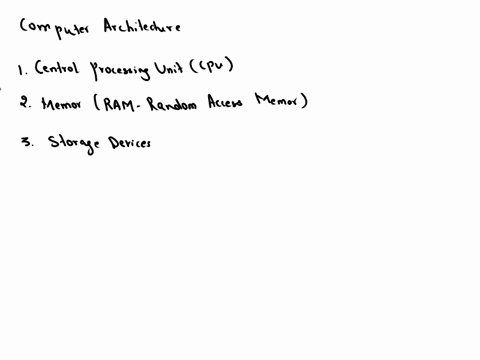 Computer Architecture
1. Central Processing Unit (CPU)
2. Memor (RAM - Random Access Memor)
3. Storage Devices